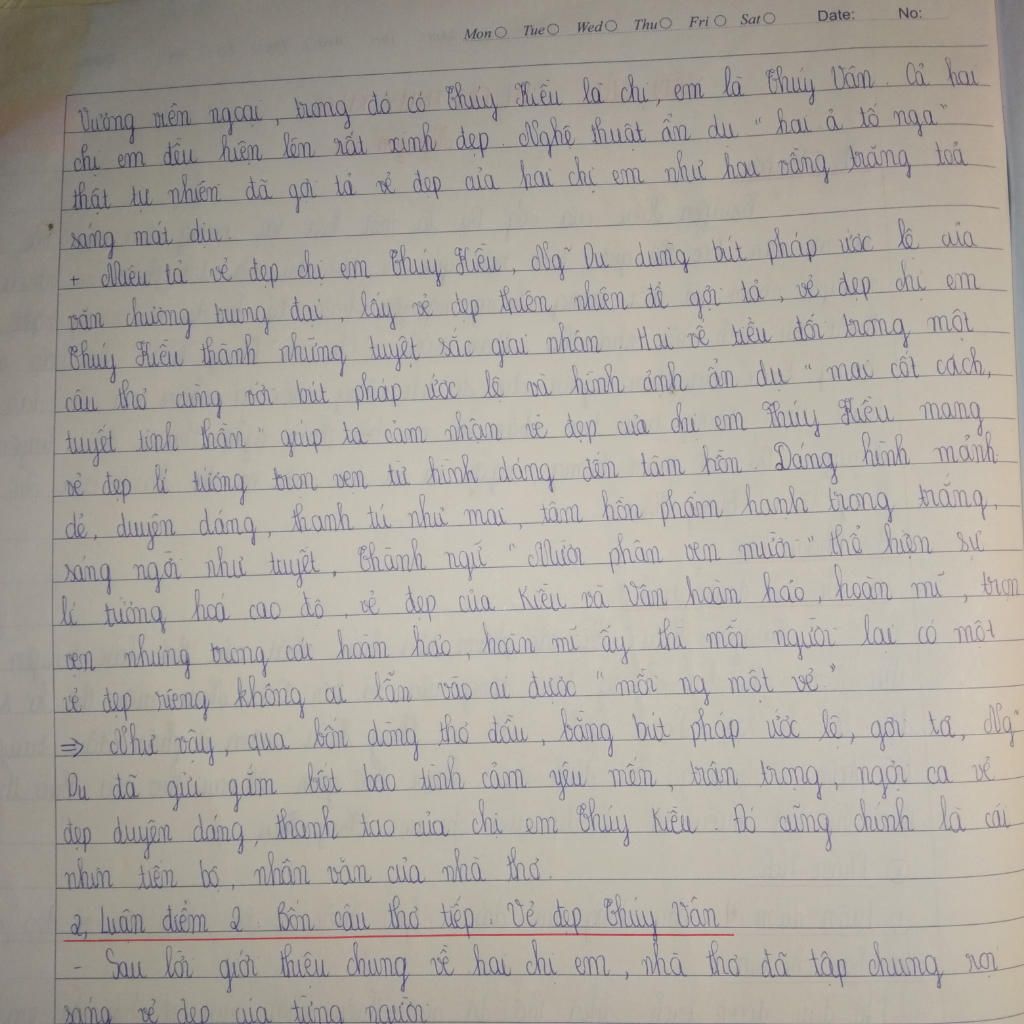 Mon Tue Wed Thu Fri Sat Date: No:
Vương viên ngoại, trong đó có Thúy Kiều là chị, em là Thúy Vân. Cả hai
chị em đều hiện lên rất xinh đẹp. Nghệ thuật ẩn dụ "hai ả tố nga"
thật tự nhiên đã gợi tả vẻ đẹp của hai chị em như hai vầng trăng toả
sáng mát dịu.
+ Miêu tả vẻ đẹp chị em Thúy Kiều, Ng~ Du dùng bút pháp ước lệ của
văn chương trung đại, lấy vẻ đẹp thiên nhiên để gợi tả, vẻ đẹp chị em
Thúy Kiều thành những tuyệt sắc giai nhân. Hai vế tiểu đối trong một
câu thơ cùng với bút pháp ước lệ và hình ảnh ẩn dụ "mai cốt cách,
tuyết tinh thần" giúp ta cảm nhận vẻ đẹp của chị em Thúy Kiều mang
vẻ đẹp lí tưởng trọn vẹn từ hình dáng đến tâm hồn. Dáng hình mảnh
dẻ, duyên dáng, thanh tú như mai, tâm hồn phẩm hạnh trong trắng,
sáng ngời như tuyết. Thành ngữ "Mười phân vẹn mười" thể hiện sự
lí tưởng hoá cao độ, vẻ đẹp của Kiều và Vân hoàn hảo, hoàn mĩ, trọn
vẹn nhưng trong cái hoàn hảo, hoàn mĩ ấy thì mỗi người lại có một
vẻ đẹp riêng không ai lẫn vào ai được "mỗi ng một vẻ"
⇒ Như vậy, qua bốn dòng thơ đầu, bằng bút pháp ước lệ, gợi tả, Ng~
Du đã gửi gắm biết bao tình cảm yêu mến, trân trọng, ngợi ca vẻ
đẹp duyên dáng, thanh tao của chị em Thúy Kiều. Đó cũng chính là cái
nhìn tiến bộ, nhân văn của nhà thơ.
2, Luận điểm 2. Bốn câu thơ tiếp. Vẻ đẹp Thúy Vân
- Sau lời giới thiệu chung về hai chị em, nhà thơ đã tập chung rọi
sáng vẻ đẹp của từng người.